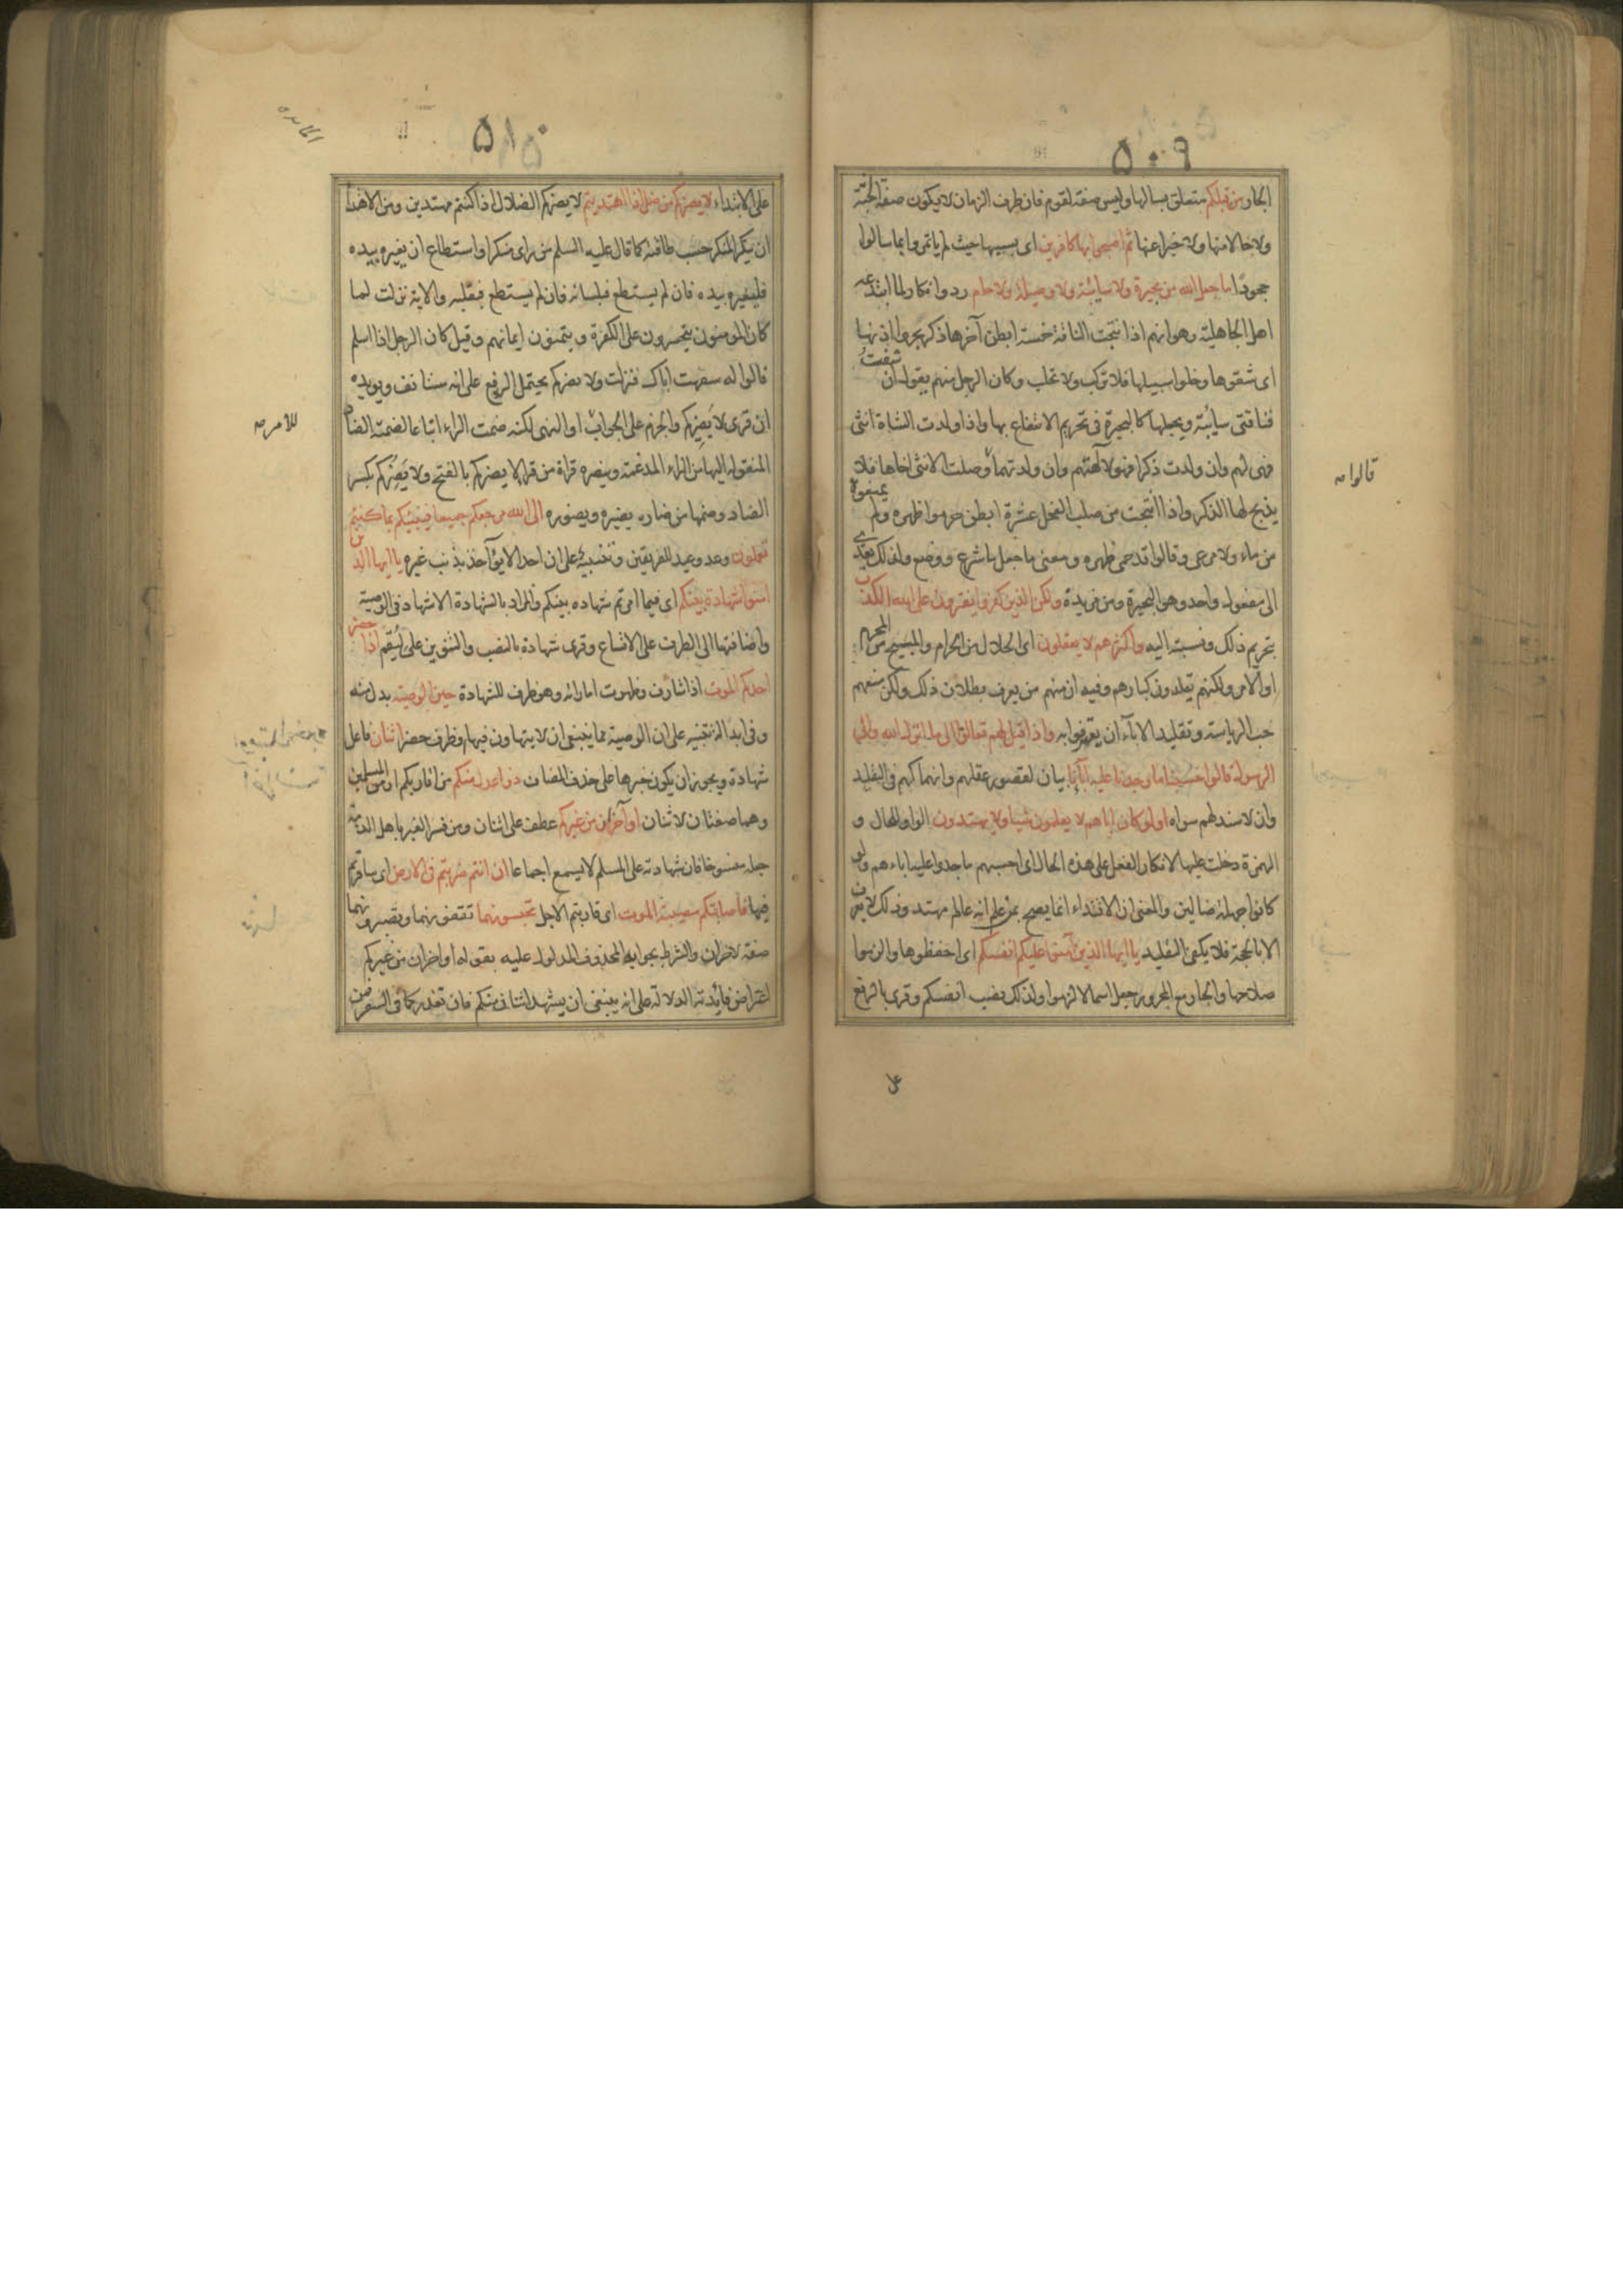 ٥٠٩
الجار من قبلكم متعلق بسالها وليس صفة لقوم فان ظرف الزمان لا يكون صفة للجثة
ولا حالا منها ولا خبرا عنها ثم اصبحوا بها كافرين اى بسببها حيث لم ياتمروا بما سالوا
جحودًا ما جعل الله من بحيرة ولا سائبة ولا وصيلة ولا حام رد وانكار لما ابتدعه
اهل الجاهلية وهو انهم اذا نتجت الناقة خمسة ابطن آخرها ذكر بحروا اذنها
اى شقوها وخلوا سبيلها فلا تركب ولا تحلب وكان الرجل منهم يقول ان شفيتُ
فناقتى سائبة ويجعلها كالبحيرة فى تحريم الانتفاع بها واذا ولدت الشاة انثى
فهى لهم وان ولدت ذكرا فهو لآلهتهم وان ولدتهما وصلت الانثى اخاها فلا
يذبح لها الذكر واذا انتجت من صلب الفحل عشرة ابطن حرموا ظهره ولم يمنعوه
من ماء ولا مرعى وقالوا قد حمى ظهره ومعنى ما جعل ما شرع ووضع ولذلك تعدى
الى مفعول واحد وهو البحيرة ومن مزيدة ولكن الذين كفروا يفترون على الله الكذب
بتحريم ذلك ونسبته اليه واكثرهم لا يعقلون اى الحلال من الحرام والمبيح من المحرم
او الآمر ولكنهم يقلدون كبارهم وفيه ان منهم من يعرف بطلان ذلك ولكن منعهم
حب الرياسة وتقليد الآباء ان يعترفوا به واذا قيل لهم تعالوا الى ما انزل الله والى
الرسول قالوا حسبنا ما وجدنا عليه آبآءنا بيان لقصور عقلهم وانهماكهم فى التقليد
وان لا سند لهم سواه اولو كان اباهم لا يعلمون شيئا ولا يهتدون الواو للحال و
الهمزة دخلت عليها لانكار الفعل على هذه الحال اى احسبهم ما وجدوا عليه اباءهم ولو
كانوا جهلة ضالين والمعنى ان الاقتداء انما يصح بمن علم انه عالم مهتد وذلك لا يعرف
الا بالحجة فلا يكفى التقليد يا ايها الذين آمنوا عليكم انفسكم اى احفظوها والزموا
صلاحها والجار مع المجرور جعل اسما لالزموا ولذلك نصب انفسكم وقرى بالرفع
على
قالوا مه
٥١٠
المايده
على الابتداء لا يضركم من ضل اذا اهتديتم لا يضركم الضلال اذا كنتم مهتدين ومن الاهتدا
ان ينكر المنكر حسب طاقته كما قال عليه السلم من راى منكرا واستطاع ان يغيره بيده
فليغيره بيده فان لم يستطع فبلسانه فان لم يستطع فبقلبه والاية نزلت لما
كان المومنون يتحسرون على الكفرة ويتمنون ايمانهم وقيل كان الرجل اذا اسلم
قالوا له سفهت اباك فنزلت ولا يضركم يحتمل الرفع على انه مستانف ويويده
ان قرى لا يَضِيركم والجزم على الجواب او النهى لكنه ضمت الراء اتباعا لضمة الضاد
المنقولة اليها من الراء المدغمة وينصره قراة من قرا لا يضركم بالفتح ولا يَضِرْكم بكسر
الضاد وضمها من ضاره يضيره ويضوره الى الله مرجعكم جميعا فينبئكم بما كنتم
تعملون وعد ووعيد للفريقين وتنبيه على ان احدا لا يؤاخذ بذنب غيره يا ايها الذين
امنوا شهادة بينكم اى فيما امرتم شهادة بينكم والمراد بالشهادة الاشهاد فى الوصية
واضافتها الى الظرف على الاتساع وقرى شهادة بالنصب والتنوين على لِيُقِم اذا حضر
احدكم الموت اذا شارف وظهرت اماراته وهو ظرف للشهادة حين الوصية بدل منه
وفى ابداله تنبيه على ان الوصية مما ينبغى ان لا يتهاون فيها او ظرف حضر اثنان فاعل
شهادة ويجوز ان يكون خبرها على حذف المضاف ذوا عدل منكم من اقاربكم او من المسلمين
وهما صفتان لاثنان او آخران من غيركم عطف على اثنان ومن فسر الغير باهل الذمة
جعله منسوخا فان شهادته على المسلم لا يسمع اجماعا ان انتم ضربتم فى الارض اى سافرتم
فيها فاصابتكم مصيبة الموت اى قاربتم الاجل تحبسونهما تقفونهما وتصبرونهما
صفة لاخران والشرط بجوابه المحذوف المدلول عليه بقوله او اخران من غيركم
اعتراض فايدته الدلالة على انه ينبغى ان يشهد اثنان منكم فان تعذر كما فى السفر فمن
للامر مه